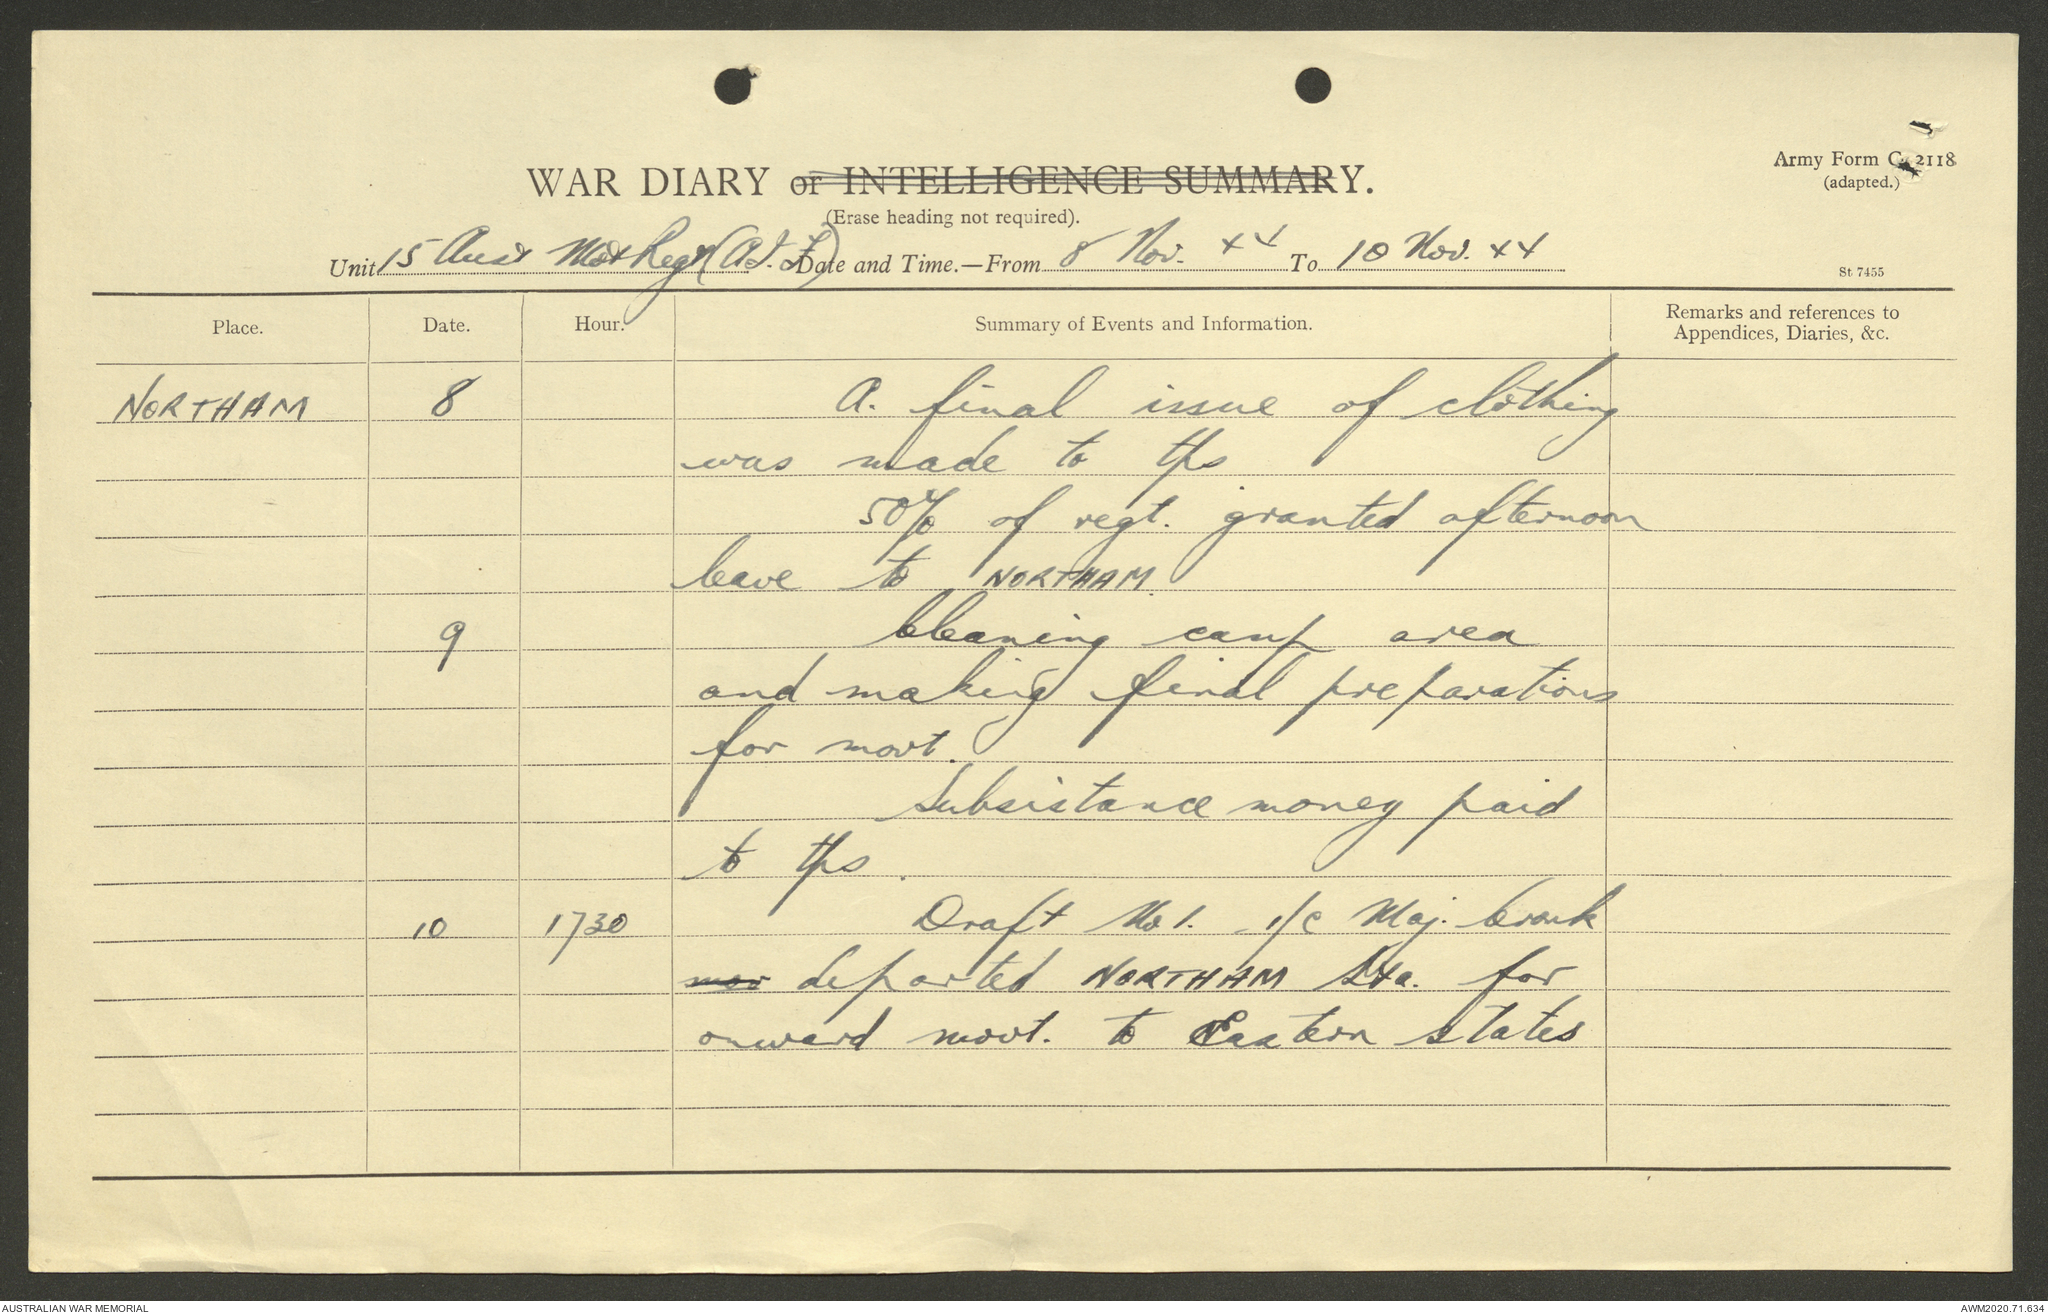 Army Form C. 2118
(adapted.)
WAR DIARY or INTELLIGENCE SUMMARY.
(Erase heading not required).
Unit 15 Aust Mot Regt (A.I.F) Date and Time.—From 8 Nov. 44 To 10 Nov. 44
St 7455
Place. Date. Hour. Summary of Events and Information. Remarks and references to
Appendices, Diaries, &c.
NORTHAM 8 A. final issue of clothing
was made to tps
50% of regt. granted afternoon
leave to NORTHAM.
9 Cleaning camp area
and making final preparations
for movt.
Subsistance money paid
to tps.
10 1730 Draft No 1. i/c Maj. Cronk
departed NORTHAM Sta. for
onward movt. to Eastern states
AUSTRALIAN WAR MEMORIAL
AWM2020.71.634